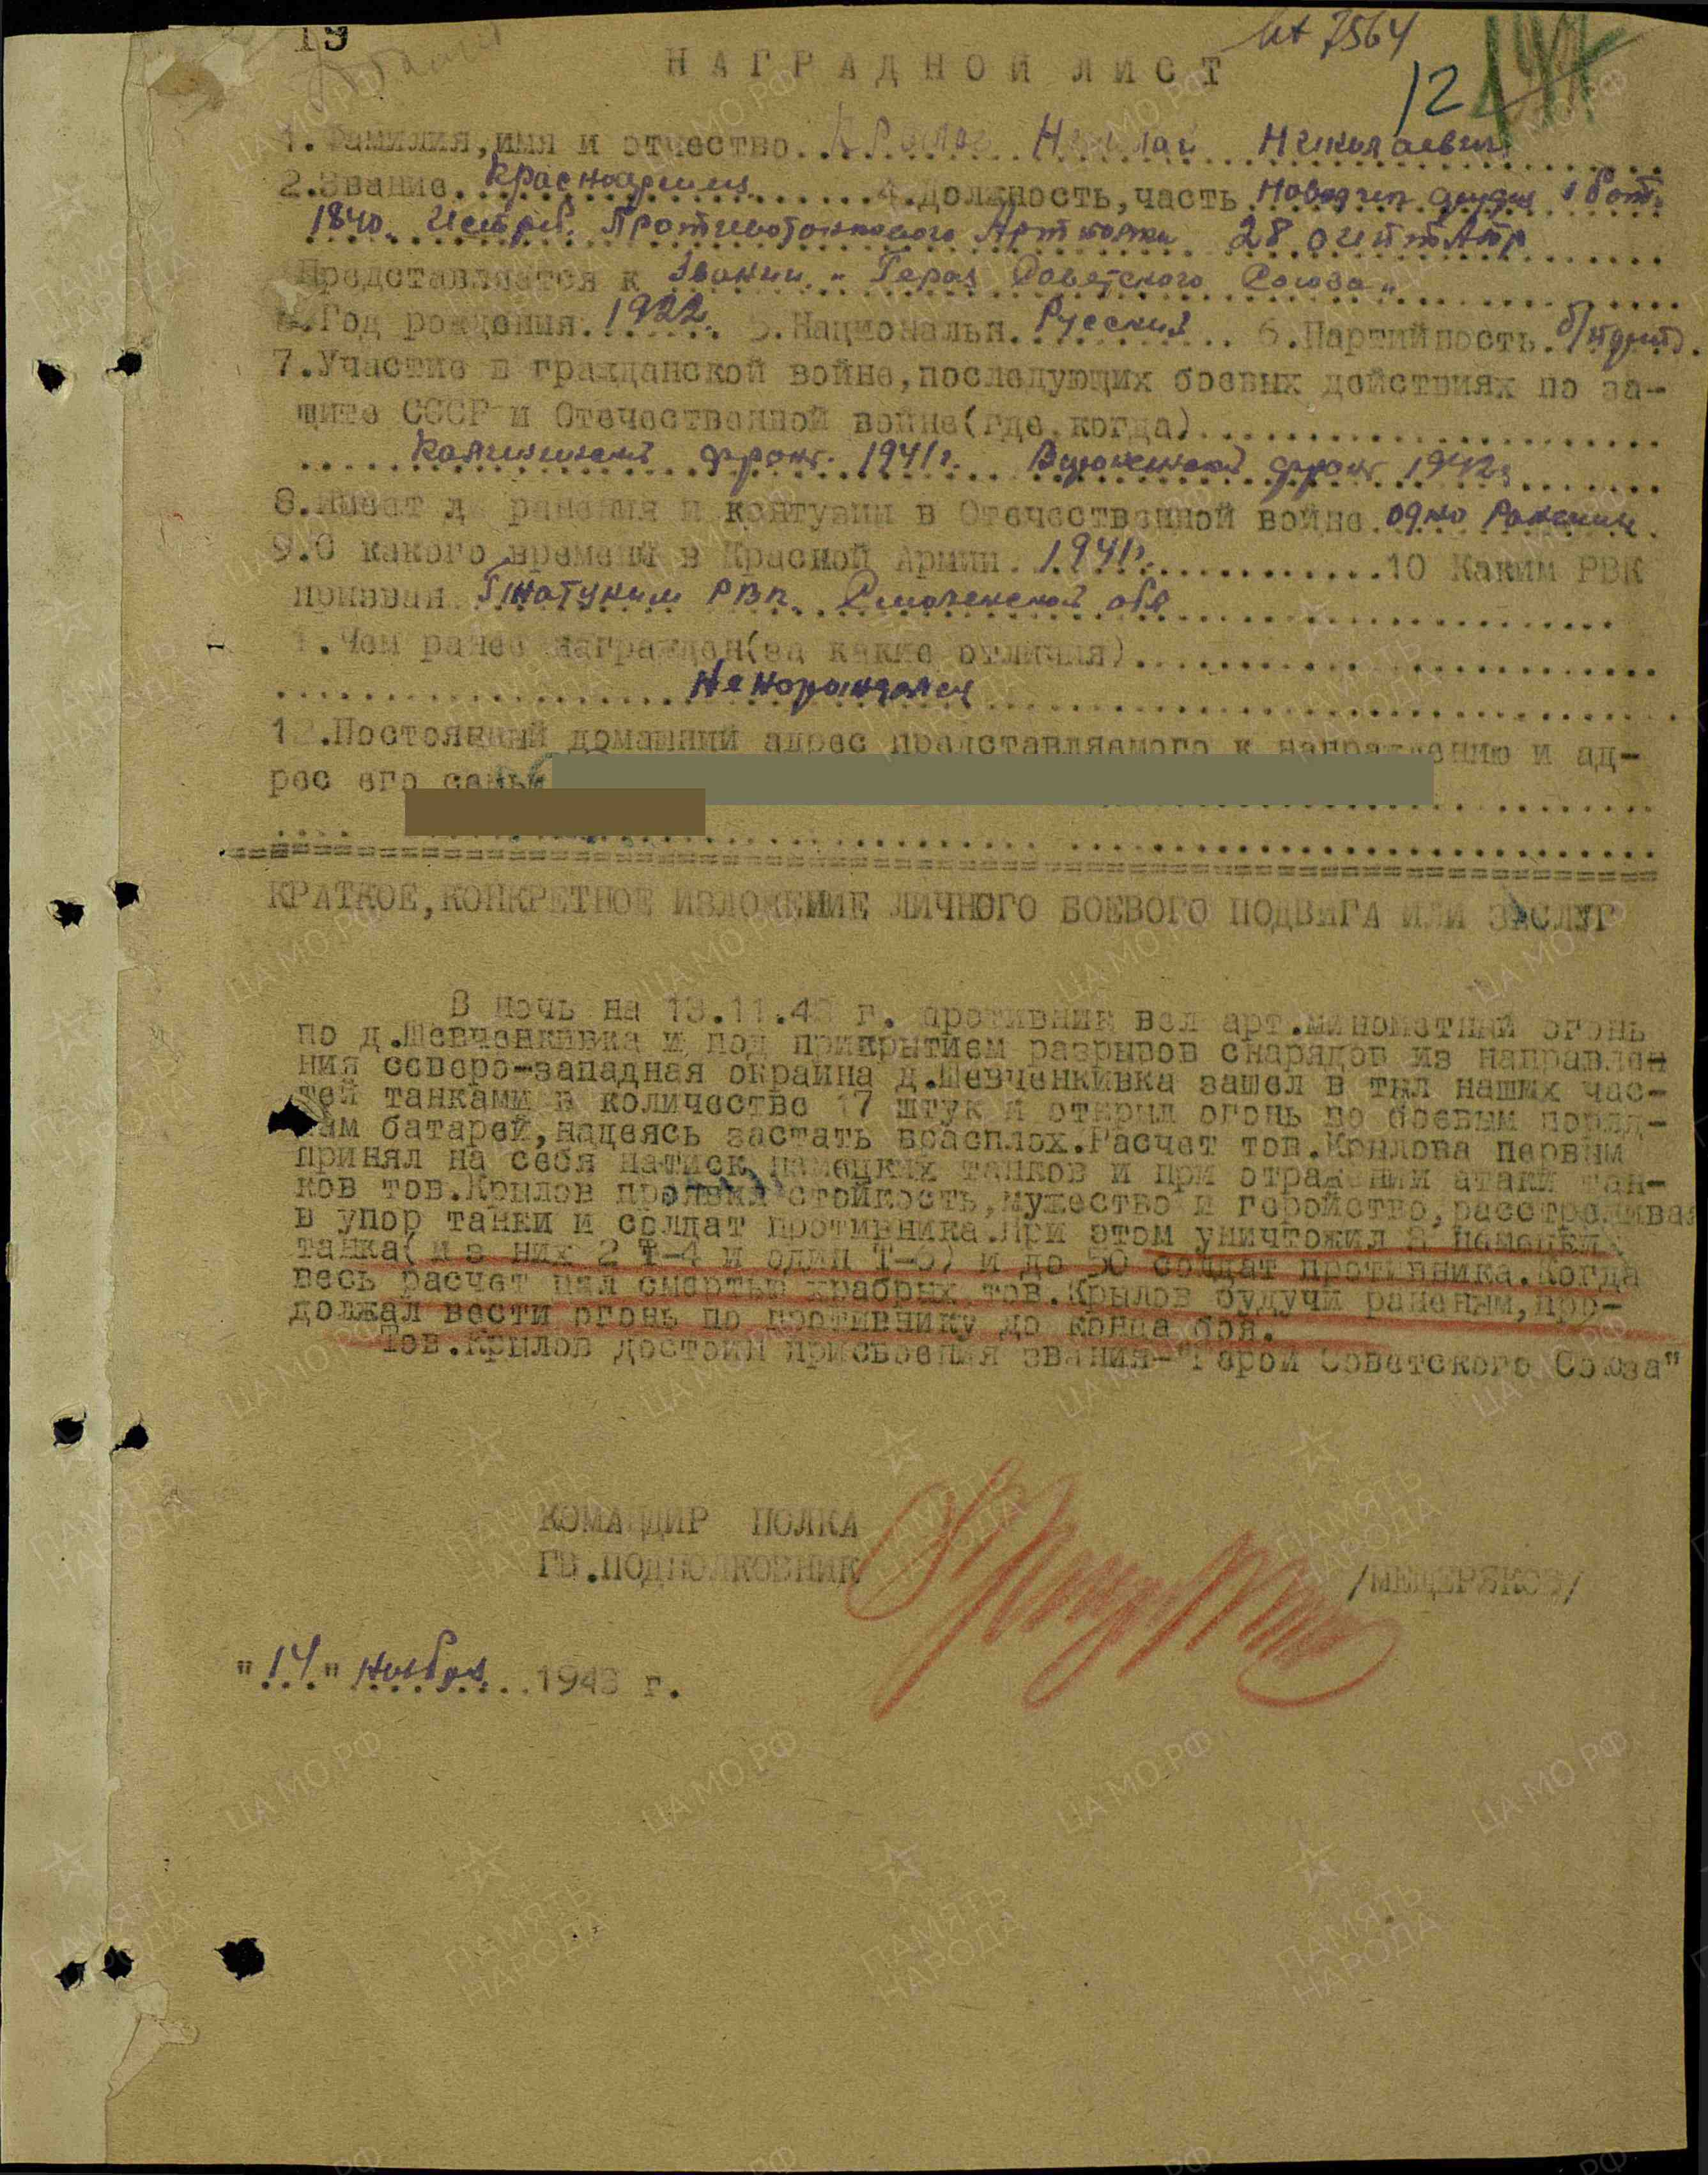 19
12
НАГРАДНОЙ ЛИСТ
1. Фамилия, имя и отчество... Крылов Николай Николаевич
2. Звание. Красноармеец........4. Должность, часть Наводчик орудия 1 бат.
1840. Истреб. Противотанкового Арт полка 28
Представляется к Званию „Героя Советского Союза"
Год рождения. 1922. 5. Национальн. Русский 6. Партийность. б/парт.
7. Участие в гражданской войне, последующих боевых действиях по за-
щите СССР и Отечественной войне(где, когда).....................
Калининский фронт. 1941г. Воронежский фронт 1942г
8. Имеет ли ранения и контузии в Отечественной войне. одно Ранение
9. С какого времени в Красной Армии. 1941г. ............10 Каким РВК
призван РВК. Смоленской обл
1. Чем ранее награжден(за какие отличия)........................
Не награждался
12. Постоянный домашний адрес представляемого к награждению и ад-
рес его семьи
КРАТКОЕ, КОНКРЕТНОЕ ИЗЛОЖЕНИЕ ЛИЧНОГО БОЕВОГО ПОДВИГА ИЛИ ЗАСЛУГ
В ночь на 13.11.43 г. противник вел арт.минометный огонь
по д.Шевченкивка и под прикрытием разрывов снарядов из направлен
ния северо-западная окраина д.Шевченкивка зашел в тыл наших час-
тей танками в количестве 17 штук и открыл огонь по боевым поряд-
кам батарей, надеясь застать врасплох. Расчет тов.Крылова первым
принял на себя натиск немецких танков и при отражении атаки тан-
ков тов.Крылов проявил стойкость, мужество и геройство, расстреливая
в упор танки и солдат противника. При этом уничтожил 3 немецких
танка( из них 2 Т-4 и один Т-6) и до 50 солдат противника. Когда
весь расчет пал смертью храбрых, тов.Крылов будучи раненым, про-
должал вести огонь по противнику до конца боя.
Тов.Крылов достоин присвоения звания-"Герой Советского Союза"
КОМАНДИР ПОЛКА
ГВ.ПОДПОЛКОВНИК /МЕЩЕРЯКОВ/
"14" ноября 1943 г.